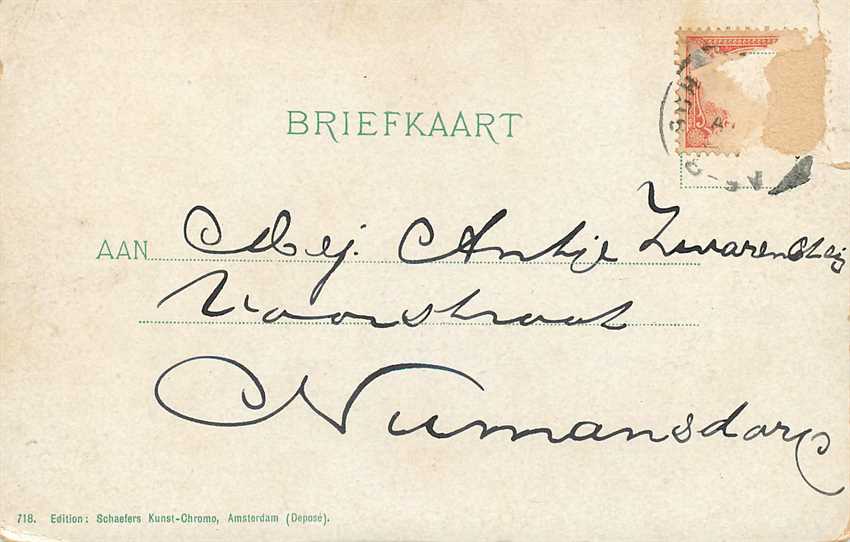 BRIEFKAART
AAN Mej. Antje Zwarensteijn
Voorstraat
Numansdorp
718. Edition: Schaefers Kunst-Chromo, Amsterdam (Deposé).